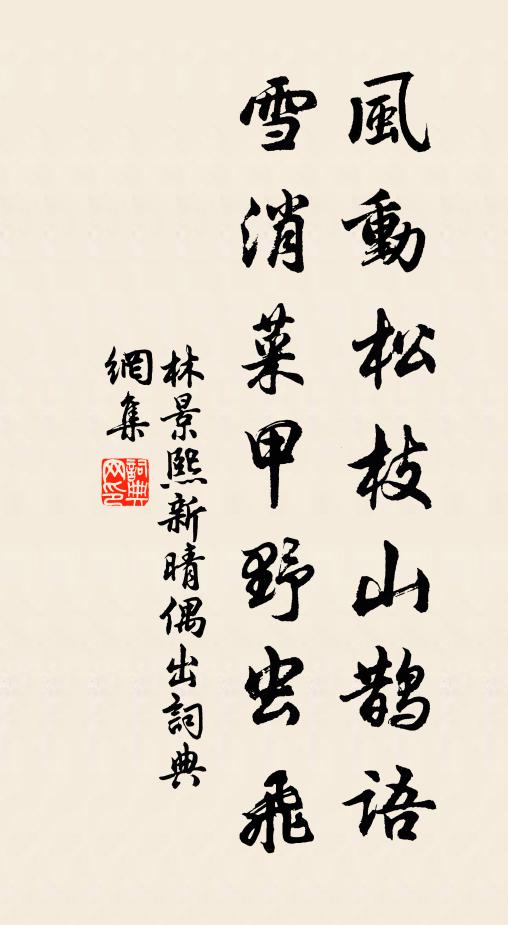 風動松枝山鵲語
雪消菜甲野虫飛
林景熙新晴偶出詞典
網集
詞典
网印